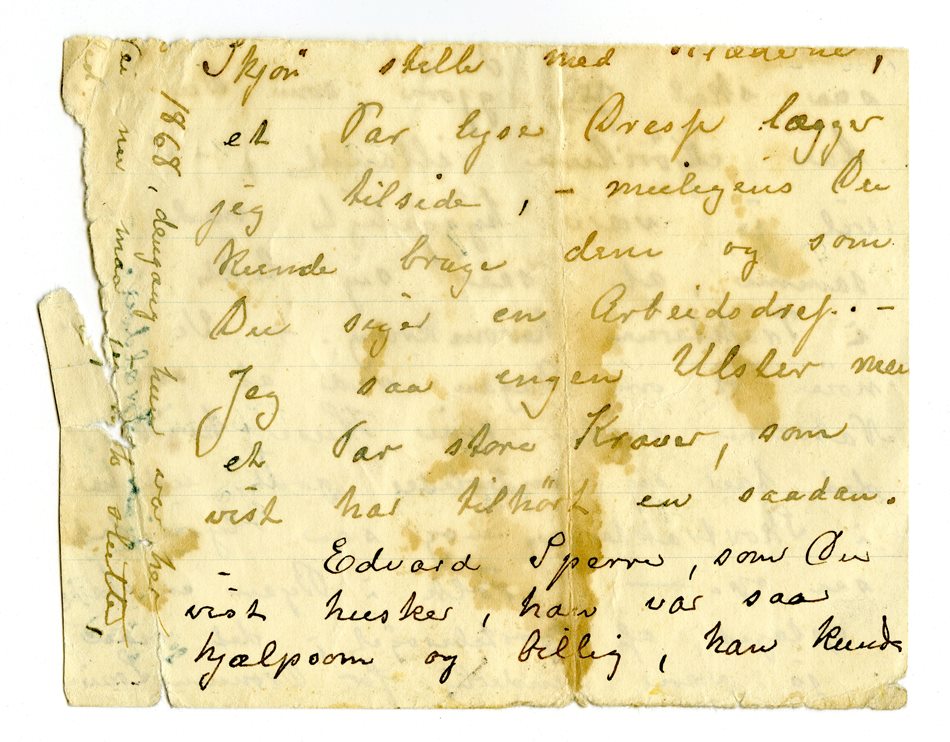 Skjøn stelle med Klæderne,
et Par lyse Dress lægger
jeg tilside, – muligens Du
kunde bruge dem og som
Du siger en Arbeidsdress. –
Jeg saa engen Ulster men
et Par store Kraver, som
vist har tilhørt en saadan.
– Edvard Sperre, som Du
vist husker, han var saa
hjælpsom og billig, han kunde
1868, dengang hun var her
nu maa jeg slutte,